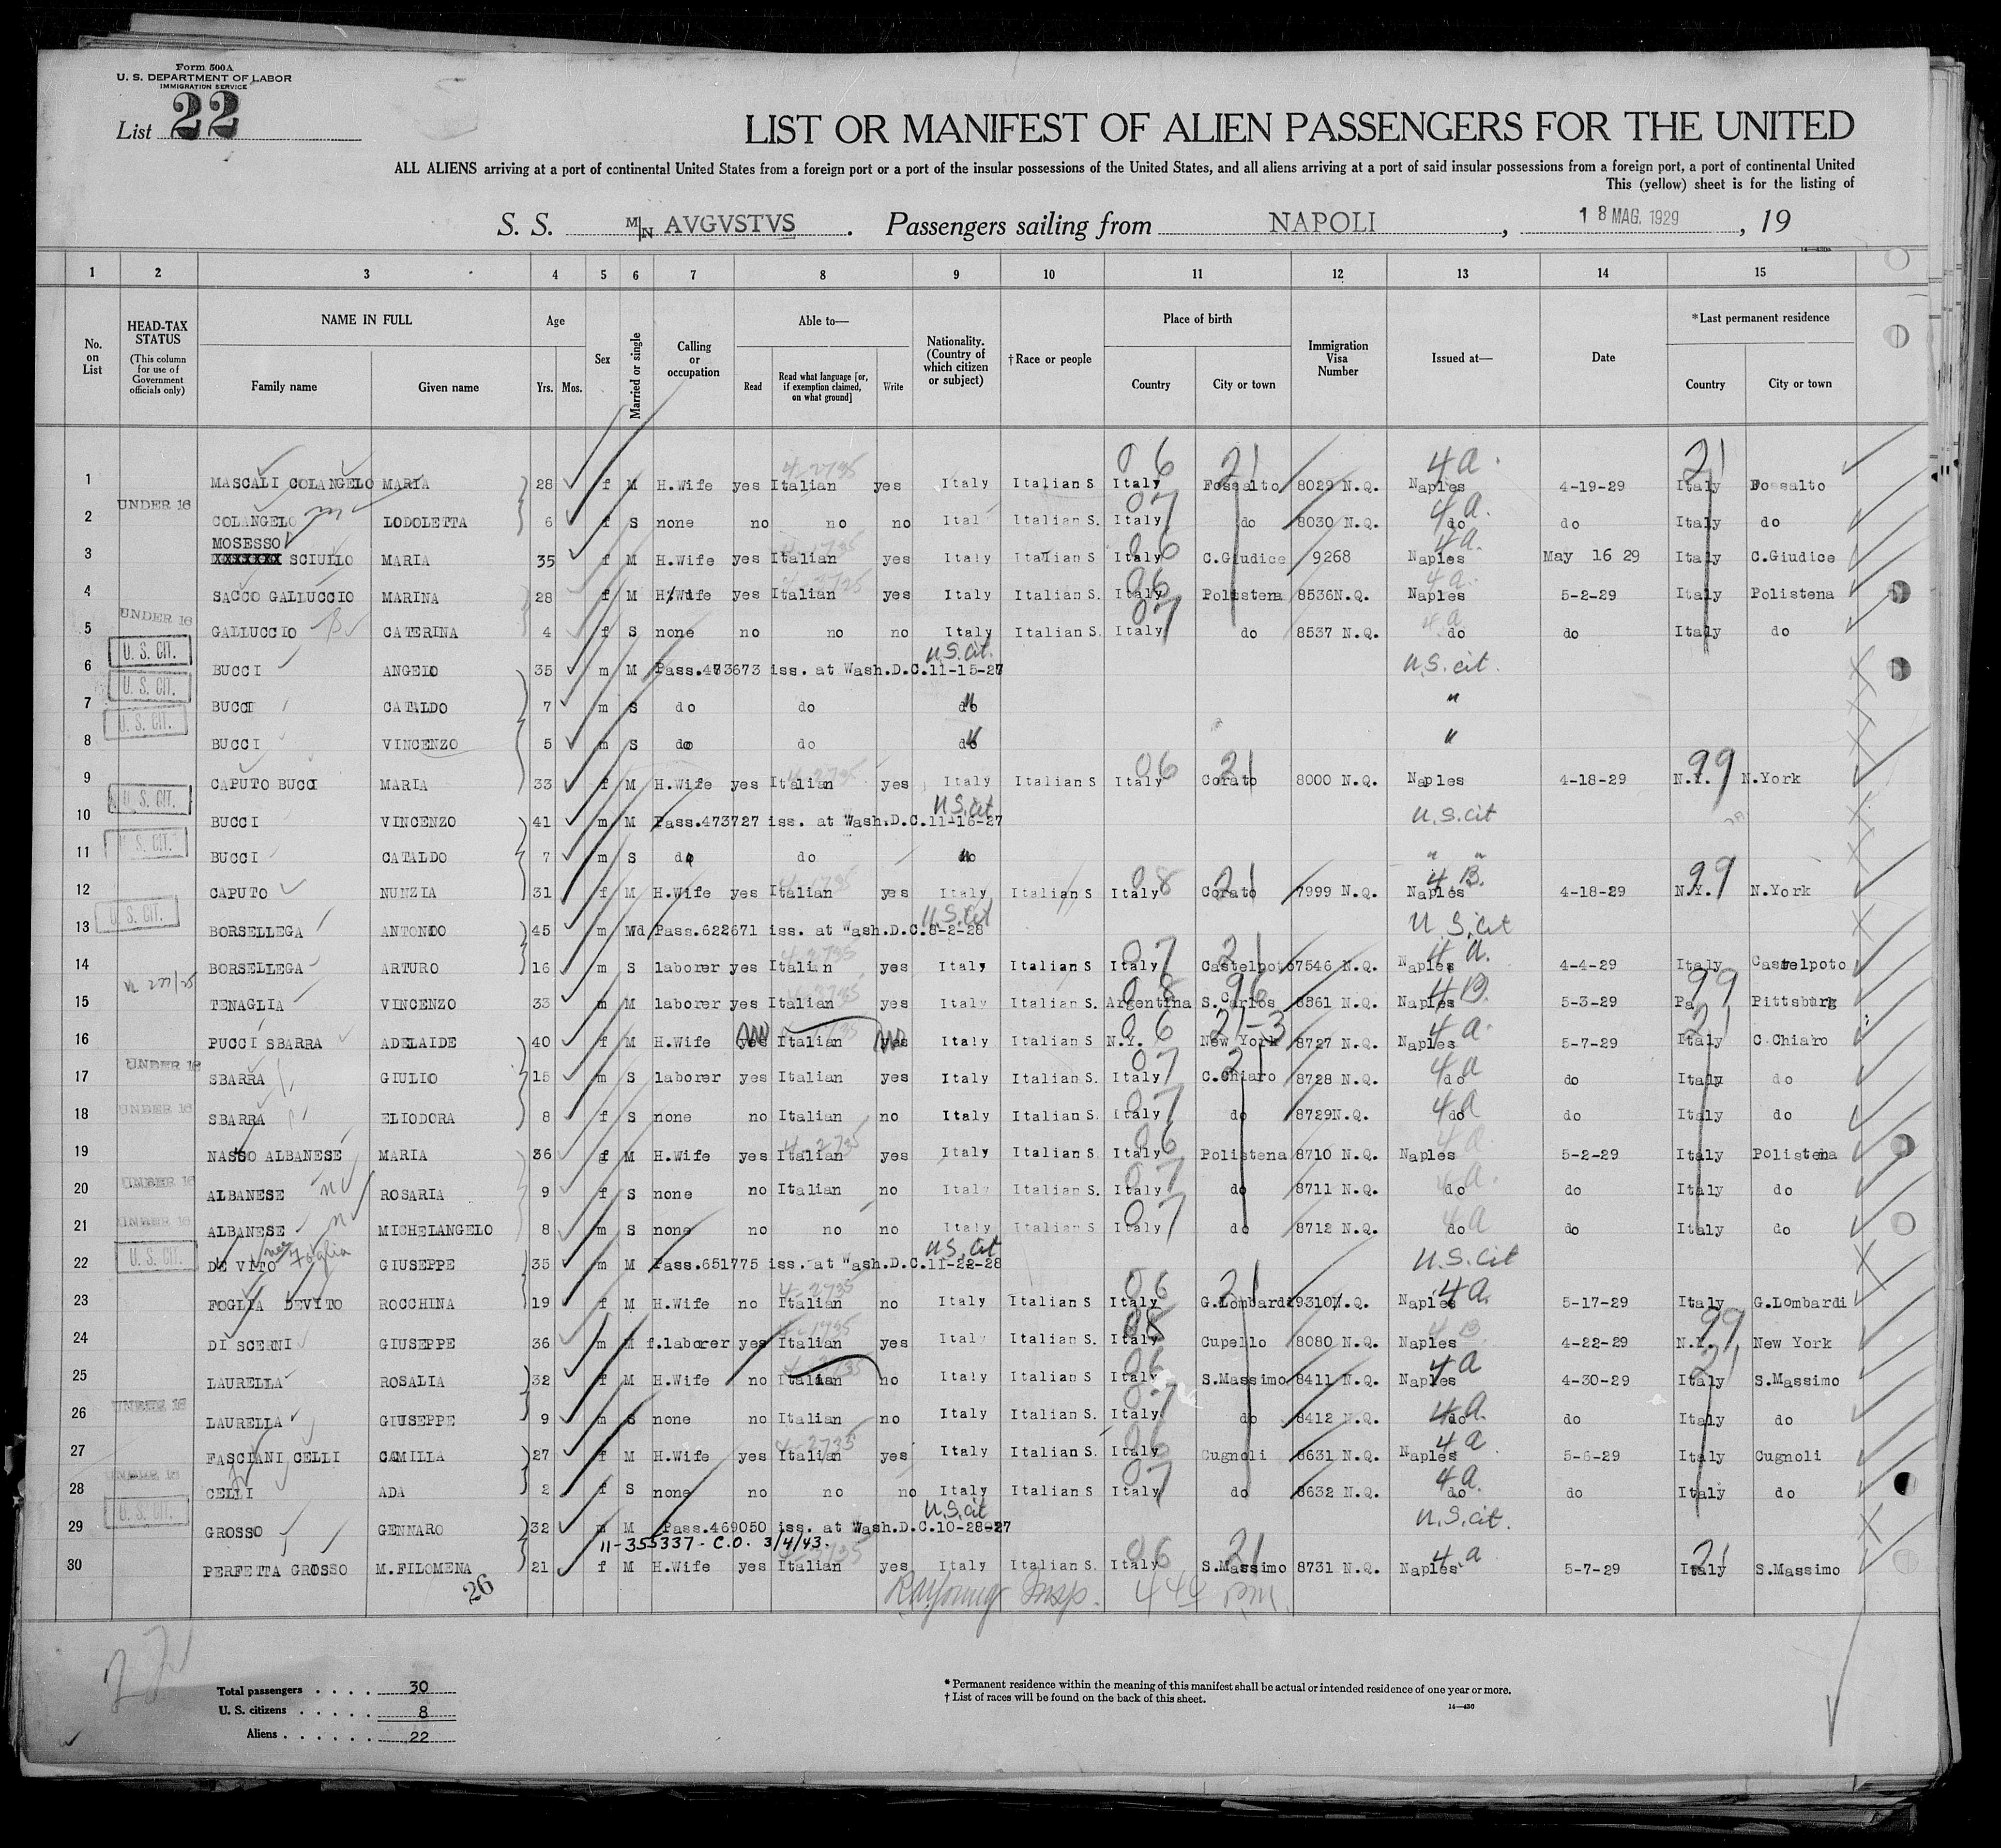 Form 500A
U. S. DEPARTMENT OF LABOR
IMMIGRATION SERVICE
List 22
LIST OR MANIFEST OF ALIEN PASSENGERS FOR THE UNITED
ALL ALIENS arriving at a port of continental United States from a foreign port or a port of the insular possessions of the United States, and all aliens arriving at a port of said insular possessions from a foreign port, a port of continental United
This (yellow) sheet is for the listing of
S. S. M/N AVGVSTVS. Passengers sailing from NAPOLI, 18 MAG. 1929, 19
14—430a
1 2 3 4 5 6 7 8 9 10 11 12 13 14 15
No. on List
HEAD-TAX STATUS (This column for use of Government officials only)
NAME IN FULL
Family name Given name
Age
Yrs. Mos.
Sex
Married or single
Calling or occupation
Able to—
Read Read what language [or, if exemption claimed, on what ground] Write
Nationality. (Country of which citizen or subject)
†Race or people
Place of birth
Country City or town
Immigration Visa Number
Issued at—
Date
*Last permanent residence
Country City or town
4-2735 06 21 4a. 21
1 MASCALI COLANGELO MARIA 28 f M H.Wife yes Italian yes Italy Italian S Italy Fossalto 8029 N.Q. Naples 4-19-29 Italy Fossalto
UNDER 16 07 4a.
2 COLANGELO m LODOLETTA 6 f S none no no no Ital Italian S. Italy do 8030 N.Q. do do Italy do
MOSESSO 06 4a.
3 XXXXXXX SCIULLO MARIA 35 f M H.Wife yes Italian yes Italy Italian S Italy C.Giudice 9268 Naples May 16 29 Italy C.Giudice
06 4a.
4 SACCO GALLUCCIO MARINA 28 f M H.Wife yes Italian yes Italy Italian S. Italy Polistena 8536N.Q. Naples 5-2-29 Italy Polistena
UNDER 16 07 4a
5 GALLUCCIO CATERINA 4 f S none no no no Italy Italian S. Italy do 8537 N.Q. do do Italy do
U. S. CIT. U.S. cit. U.S. cit.
6 BUCCI ANGELO 35 m M Pass.473673 iss. at Wash.D.C.11-15-27
U. S. CIT. "
7 BUCCI CATALDO 7 m S do do do
U. S. CIT. "
8 BUCCI VINCENZO 5 m S do do do
4-2735 06 21 99
9 CAPUTO BUCCI MARIA 33 f M H.Wife yes Italian yes Italy Italian S Italy Corato 8000 N.Q. Naples 4-18-29 N.Y. N.York
U. S. CIT. U.S. cit U.S. cit
10 BUCCI VINCENZO 41 m M Pass.473727 iss. at Wash.D.C.11-16-27
U. S. CIT. " "
11 BUCCI CATALDO 7 m S do do do
08 21 4B. 99
12 CAPUTO NUNZIA 31 f M H.Wife yes Italian yes Italy Italian S Italy Corato 7999 N.Q. Naples 4-18-29 N.Y. N.York
U. S. CIT. U.S. cit U.S. cit
13 BORSELLEGA ANTONIO 45 m Wd Pass.622671 iss. at Wash.D.C.8-2-28
4-2735 07 21 4a.
14 BORSELLEGA ARTURO 16 m S laborer yes Italian yes Italy Italian S Italy Castelpoto 7546 N.Q. Naples 4-4-29 Italy Castelpoto
08 96 4B. 99
15 TENAGLIA VINCENZO 33 m M laborer yes Italian yes Italy Italian S. Argentina S.Carlos 8861 N.Q. Naples 5-3-29 Pa. Pittsburg
06 21-3 4a. 21
16 PUCCI SBARRA ADELAIDE 40 f M H.Wife yes no Italian yes no Italy Italian S N.Y. New York 8727 N.Q. Naples 5-7-29 Italy C.Chiaro
UNDER 16 07 21 4a
17 SBARRA GIULIO 15 m S laborer yes Italian yes Italy Italian S. Italy C.Chiaro 8728 N.Q. do do Italy do
UNDER 16 07 4a
18 SBARRA ELIODORA 8 f S none no Italian no Italy Italian S. Italy do 8729N.Q. do do Italy do
4-2735 06 4a
19 NASSO ALBANESE MARIA 36 f M H.Wife yes Italian yes Italy Italian S Italy Polistena 8710 N.Q. Naples 5-2-29 Italy Polistena
UNDER 16 07 4a.
20 ALBANESE m ROSARIA 9 f S none no Italian no Italy Italian S. Italy do 8711 N.Q. do do Italy do
UNDER 16 07 4a
21 ALBANESE m MICHELANGELO 8 m S none no no no Italy Italian S Italy do 8712 N.Q. do do Italy do
U. S. CIT. nee Foglia U.S. cit U.S. cit
22 DE VITO GIUSEPPE 35 m M Pass.651775 iss. at Wash.D.C.11-22-28
4-2735 06 21 4a.
23 FOGLIA DEVITO ROCCHINA 19 f M H.Wife no Italian no Italy Italian S Italy G.Lombardi 9310 N.Q. Naples 5-17-29 Italy G.Lombardi
08 4B 99
24 DI SCERNI GIUSEPPE 36 m M f.laborer yes Italian yes Italy Italian S. Italy Cupello 8080 N.Q. Naples 4-22-29 N.Y. New York
06 4a 21
25 LAURELLA ROSALIA 32 f M H.Wife no Italian no Italy Italian S Italy S.Massimo 8411 N.Q. Naples 4-30-29 Italy S.Massimo
UNDER 16 07 4a.
26 LAURELLA GIUSEPPE 9 m S none no Italian no Italy Italian S. Italy do 8412 N.Q. do do Italy do
4-2735 06 4a
27 FASCIANI CELLI CAMILLA 27 f M H.Wife yes Italian yes Italy Italian S. Italy Cugnoli 8631 N.Q. Naples 5-6-29 Italy Cugnoli
UNDER 16 07 4a.
28 CELLI ADA 2 f S none no no no Italy Italian S Italy do 8632 N.Q. do do Italy do
U. S. CIT. U.S. cit U.S. cit.
29 GROSSO GENNARO 32 m M Pass.469050 iss. at Wash.D.C.10-28-27
11-355337- C.O. 3/4/43. 06 21 4a 21
30 PERFETTA GROSSO M.FILOMENA 21 f M H.Wife yes Italian yes Italy Italian S. Italy S.Massimo 8731 N.Q. Naples 5-7-29 Italy S.Massimo
26 Insp. P.M.
Total passengers . . . . 30
U. S. citizens . . . . . 8
Aliens . . . . . . 22
* Permanent residence within the meaning of this manifest shall be actual or intended residence of one year or more.
† List of races will be found on the back of this sheet.
14—430